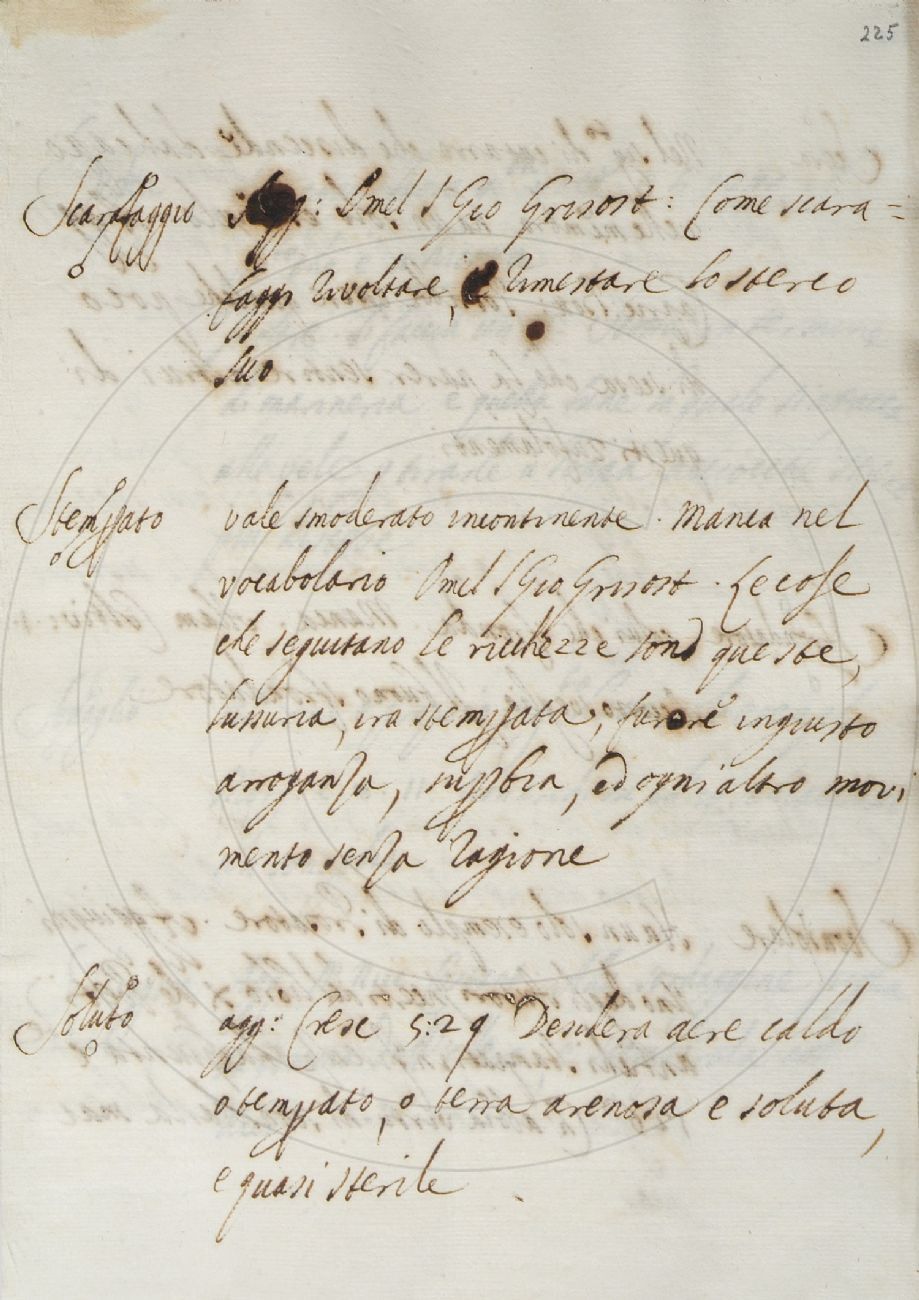 225
Scaraffaggio agg: Omel S Gio Grisost: Come scara=
faggi rivoltare, e rimestare lo sterco
suo
Stemppato vale smoderato incontinente. Manca nel
vocabolario Omel S Gio Grisost. Le cose
che seguitano le ricchezze sono queste,
lussuria, ira stemppata, furore ingiusto
arroganza, suppbia, ed ogni altro movi
mento senza ragione
Soluto agg: Cresc 5:29 Desidera aere caldo
o temppato, o terra arenosa e soluta,
e quasi sterile